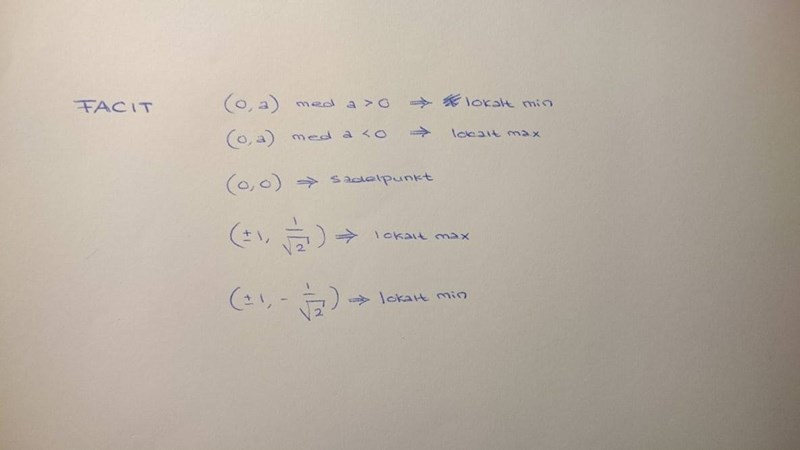 FACIT (0,a) med a > 0 ⇒ lokalt min
(0,a) med a < 0 ⇒ lokalt max
(0,0) ⇒ sadelpunkt
(±1, 1/√2) ⇒ lokalt max
(±1, - 1/√2) ⇒ lokalt min